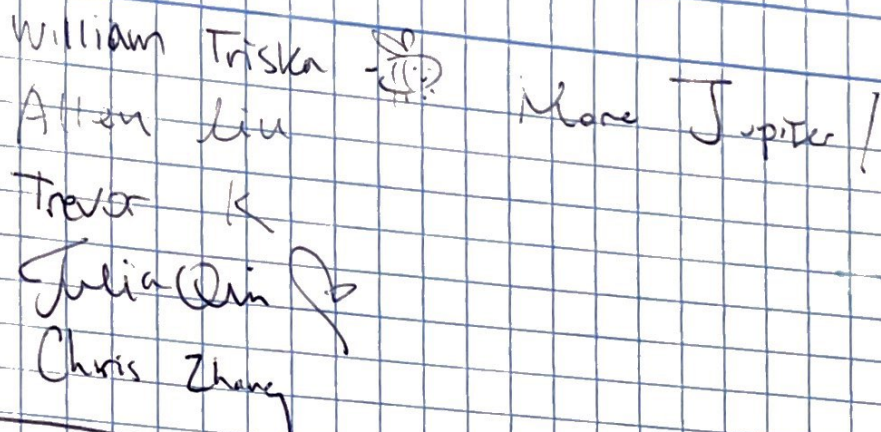 William Triska More Jupiter!
Allen Liu
Trevor K
Julia Qin
Chris Zhang